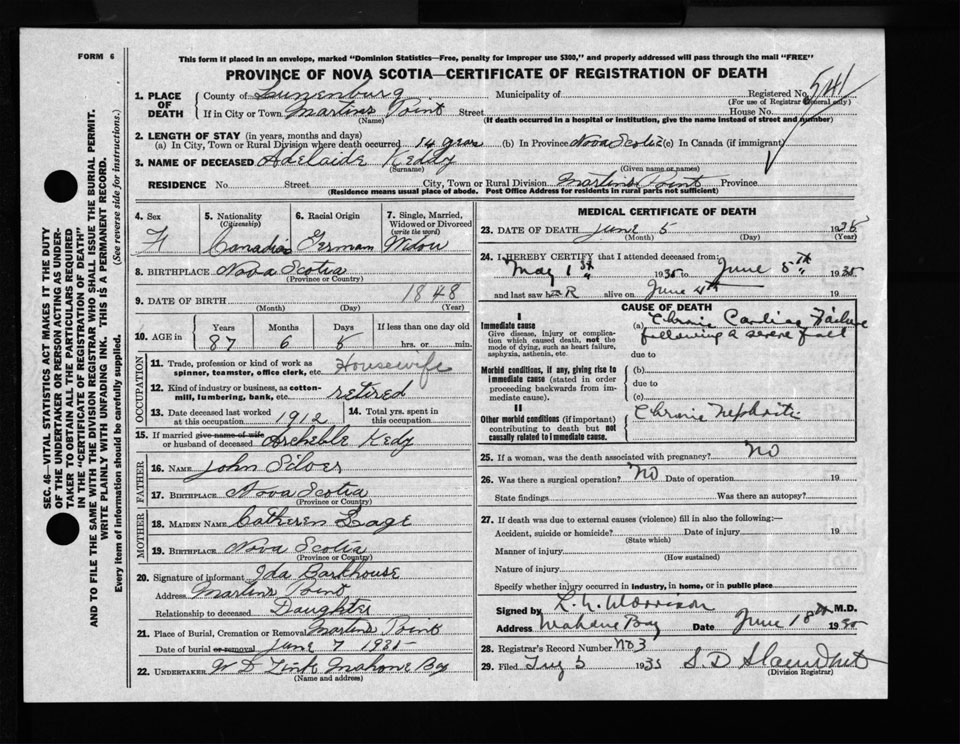 FORM 6
This form if placed in an envelope, marked "Dominion Statistics—Free, penalty for improper use $300," and properly addressed will pass through the mail "FREE"
PROVINCE OF NOVA SCOTIA—CERTIFICATE OF REGISTRATION OF DEATH
SEC. 46—VITAL STATISTICS ACT MAKES IT THE DUTY
OF THE UNDERTAKER OR PERSON ACTING AS UNDER-
TAKER TO OBTAIN ALL THE PARTICULARS REQUIRED
IN THE "CERTIFICATE OF REGISTRATION OF DEATH"
AND TO FILE THE SAME WITH THE DIVISION REGISTRAR WHO SHALL ISSUE THE BURIAL PERMIT.
WRITE PLAINLY WITH UNFADING INK. THIS IS A PERMANENT RECORD.
Every item of information should be carefully supplied. (See reverse side for instructions.)
1. PLACE OF DEATH
County of Lunenburg Municipality of Registered No. 541
(For use of Registrar General only)
If in City or Town Martins Point Street House No.
(Name) (If death occurred in a hospital or institution, give the name instead of street and number)
2. LENGTH OF STAY (in years, months and days)
(a) In City, Town or Rural Division where death occurred 14 (b) In Province Nova Scotia (c) In Canada (if immigrant)
3. NAME OF DECEASED Adelaide Keddy
(Surname) (Given name or names)
RESIDENCE No. Street City, Town or Rural Division Martins Point Province
(Residence means usual place of abode. Post Office Address for residents in rural parts not sufficient)
4. Sex F
5. Nationality (Citizenship) Canadian
6. Racial Origin German
7. Single, Married, Widowed or Divorced (write the word) Widow
8. BIRTHPLACE Nova Scotia
(Province or Country)
9. DATE OF BIRTH 1848
(Month) (Day) (Year)
10. AGE in Years 87 Months 6 Days 5 If less than one day old hrs. or min.
OCCUPATION
11. Trade, profession or kind of work as spinner, teamster, office clerk, etc. Housewife
12. Kind of industry or business, as cotton-mill, lumbering, bank, etc. retired
13. Date deceased last worked at this occupation 1912
14. Total yrs. spent in this occupation
15. If married give name of wife or husband of deceased Kedy
FATHER
16. NAME John Silver
17. BIRTHPLACE Nova Scotia
(Province or Country)
MOTHER
18. MAIDEN NAME Catheren
19. BIRTHPLACE Nova Scotia
(Province or Country)
20. Signature of informant Ida Barkhouse
Address Martins Point
Relationship to deceased Daughter
21. Place of Burial, Cremation or Removal Martins Point
Date of burial or removal June 7 1935
22. UNDERTAKER W D Zink Mahone Bay
(Name and address)
MEDICAL CERTIFICATE OF DEATH
23. DATE OF DEATH June 5 1935
(Month) (Day) (Year)
24. I HEREBY CERTIFY that I attended deceased from:
May 1st 1935 to June 5th 1935
and last saw her alive on June 4th
CAUSE OF DEATH
I
Immediate cause
Give disease, injury or complication which caused death, not the mode of dying, such as heart failure, asphyxia, asthenia, etc.
(a) Chronic Cardiac Failure
following a severe fall
due to
Morbid conditions, if any, giving rise to immediate cause (stated in order proceeding backwards from immediate cause).
(b)
due to
(c)
II
Other morbid conditions (if important) contributing to death but not causally related to immediate cause.
Chronic Nephritis
25. If a woman, was the death associated with pregnancy? NO
26. Was there a surgical operation? NO Date of operation 19
State findings Was there an autopsy?
27. If death was due to external causes (violence) fill in also the following:—
Accident, suicide or homicide? Date of injury 19
(State which)
Manner of injury
(How sustained)
Nature of injury
Specify whether injury occurred in industry, in home, or in public place
Signed by Morrison M.D.
Address Mahone Bay Date June 18th 1935
28. Registrar's Record Number No 3
29. Filed 5 1935 S. D
(Division Registrar)